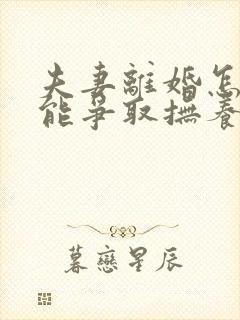 夫妻離婚怎
能爭取撫養
暮戀星辰